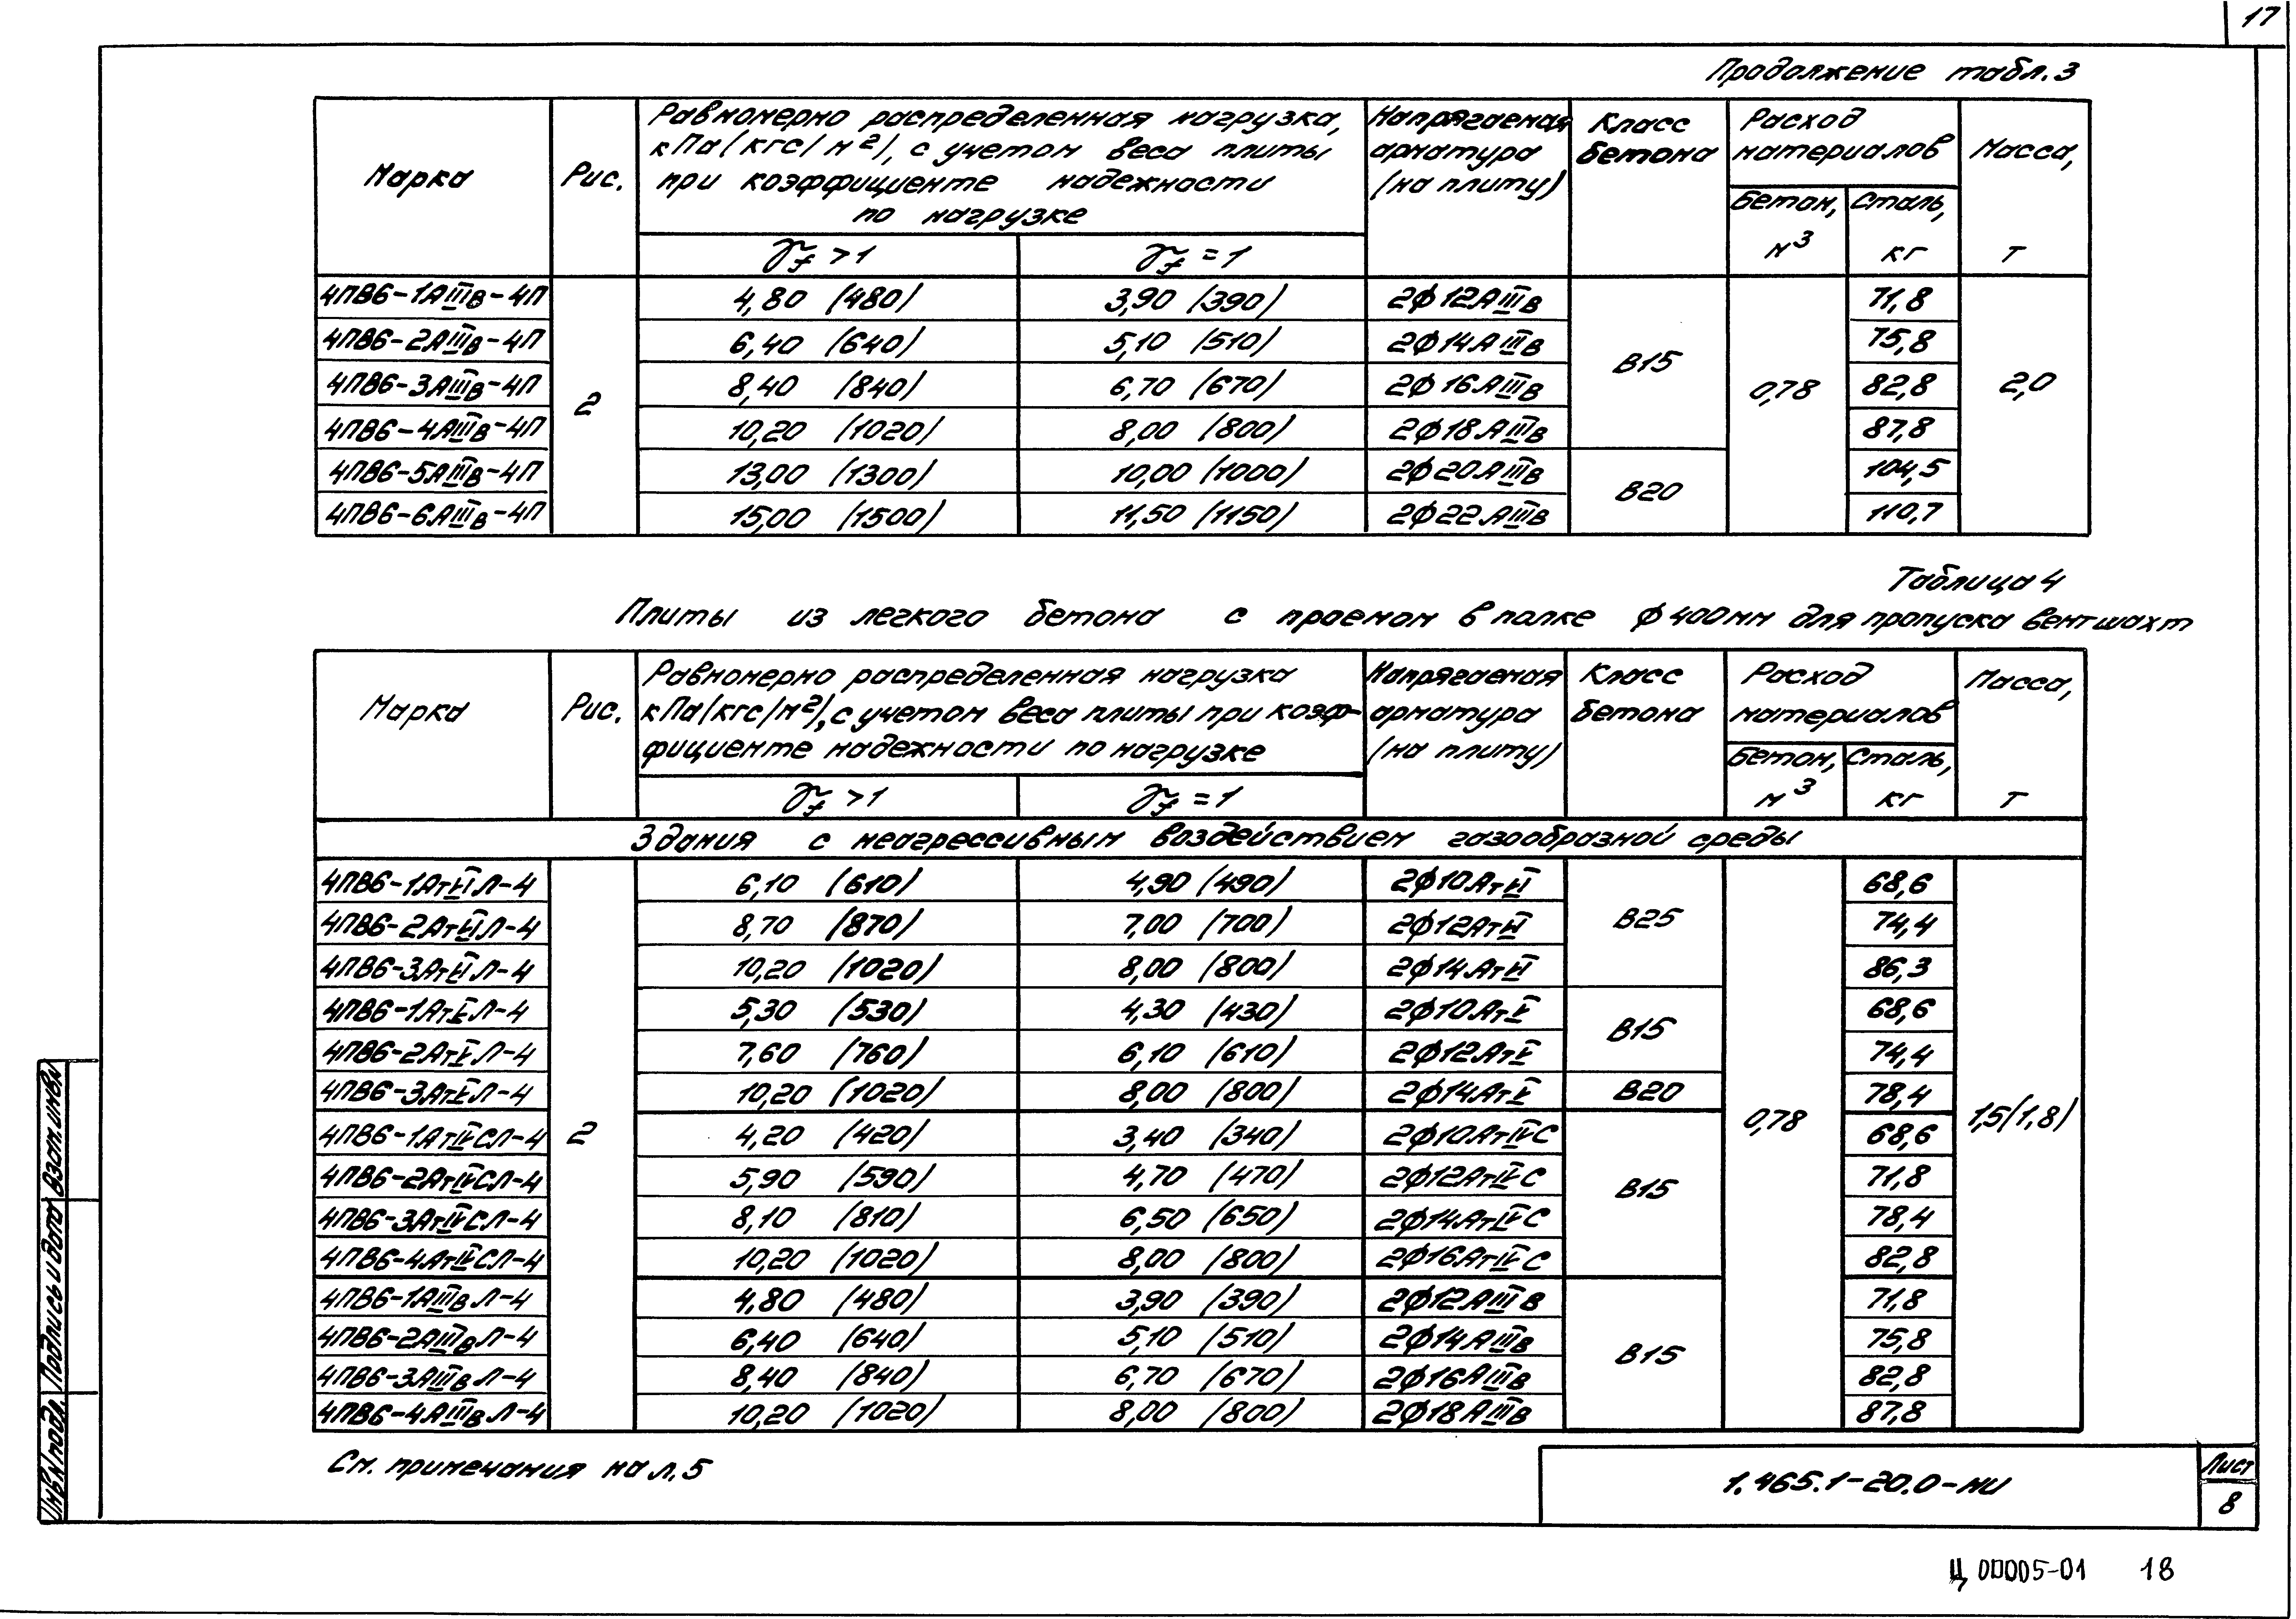 17
Продолжение табл. 3
Марка
Рис.
Равномерно распределенная нагрузка,
кПа (кгс/м²), с учетом веса плиты
при коэффициенте надежности
по нагрузке
γf >1
γf =1
Напрягаемая
арматура
(на плиту)
Класс
бетона
Расход
материалов
Бетон,
м³
Сталь,
кг
Масса,
т
4ПВ6-1АIIIв-4П 4,80 (480) 3,90 (390) 2ф12АIIIв 71,8
4ПВ6-2АIIIв-4П 6,40 (640) 5,10 (510) 2ф14АIIIв 75,8
В15
4ПВ6-3АIIIв-4П 2 8,40 (840) 6,70 (670) 2ф16АIIIв 0,78 82,8 2,0
4ПВ6-4АIIIв-4П 10,20 (1020) 8,00 (800) 2ф18АIIIв 87,8
4ПВ6-5АIIIв-4П 13,00 (1300) 10,00 (1000) 2ф20АIIIв 104,5
В20
4ПВ6-6АIIIв-4П 15,00 (1500) 11,50 (1150) 2ф22АIIIв 110,7
Таблица 4
Плиты из легкого бетона с проемом в полке ф 400мм для пропуска вентшахт
Марка
Рис.
Равномерно распределенная нагрузка
кПа (кгс/м²), с учетом веса плиты при коэф-
фициенте надежности по нагрузке
γf >1
γf =1
Напрягаемая
арматура
(на плиту)
Класс
бетона
Расход
материалов
Бетон,
м³
Сталь,
кг
Масса,
т
Здания с неагрессивным воздействием газообразной среды
4ПВ6-1АтVIЛ-4 6,10 (610) 4,90 (490) 2ф10АтVI 68,6
4ПВ6-2АтVIЛ-4 8,70 (870) 7,00 (700) 2ф12АтVI В25 74,4
4ПВ6-3АтVIЛ-4 10,20 (1020) 8,00 (800) 2ф14АтVI 86,3
4ПВ6-1АтVЛ-4 5,30 (530) 4,30 (430) 2ф10АтV 68,6
В15
4ПВ6-2АтVЛ-4 7,60 (760) 6,10 (610) 2ф12АтV 74,4
4ПВ6-3АтVЛ-4 10,20 (1020) 8,00 (800) 2ф14АтV В20 78,4
4ПВ6-1АтIVСЛ-4 2 4,20 (420) 3,40 (340) 2ф10АтIVС 0,78 68,6 1,5(1,8)
4ПВ6-2АтIVСЛ-4 5,90 (590) 4,70 (470) 2ф12АтIVС 71,8
В15
4ПВ6-3АтIVСЛ-4 8,10 (810) 6,50 (650) 2ф14АтIVС 78,4
4ПВ6-4АтIVСЛ-4 10,20 (1020) 8,00 (800) 2ф16АтIVС 82,8
4ПВ6-1АIIIвЛ-4 4,80 (480) 3,90 (390) 2ф12АIIIв 71,8
4ПВ6-2АIIIвЛ-4 6,40 (640) 5,10 (510) 2ф14АIIIв 75,8
В15
4ПВ6-3АIIIвЛ-4 8,40 (840) 6,70 (670) 2ф16АIIIв 82,8
4ПВ6-4АIIIвЛ-4 10,20 (1020) 8,00 (800) 2ф18АIIIв 87,8
См. примечания на л. 5
1.465.1-20.0-НИ
Лист
8
Инв.N подл. Подпись и дата Взам.инв.N
Ц 00005-01 18